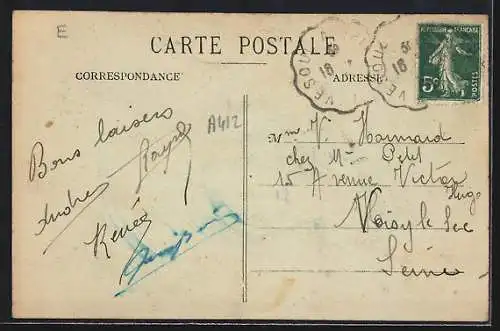 E
CARTE POSTALE
CORRESPONDANCE
ADRESSE
RÉPUBLIQUE FRANÇAISE
5c
POSTES
VESOUL
18
VESOUL
18
A412
Bons baisers
Andrée
Renée
chez Mr Petit
15 Avenue Victor
Hugo
Noisy le Sec
Seine